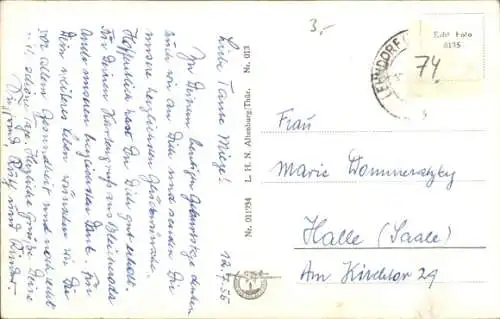 3.-
12.7.55
Liebe Tante Miezel!
Zu Deinem heutigen Geburtstage denken
auch wir an Dich und senden Dir
unsere herzlichsten Glückwünsche.
Hoffentlich hast Du Dich gut erholt.
Für Deinen Kartengruß aus
Ende unseren herzlichsten Dank. Für
Dein weiteres Leben wünschen wir Dir
vor allem Gesundheit und noch recht
viele Herzliche Grüße Deine
und Kinder
Nr. 011954 L. H. N. Altenburg/Thür. Nr. 013
LEHNDORF
Echt Foto
0135
74
Frau
Marie
Halle (Saale)
Am Kirchtor 29